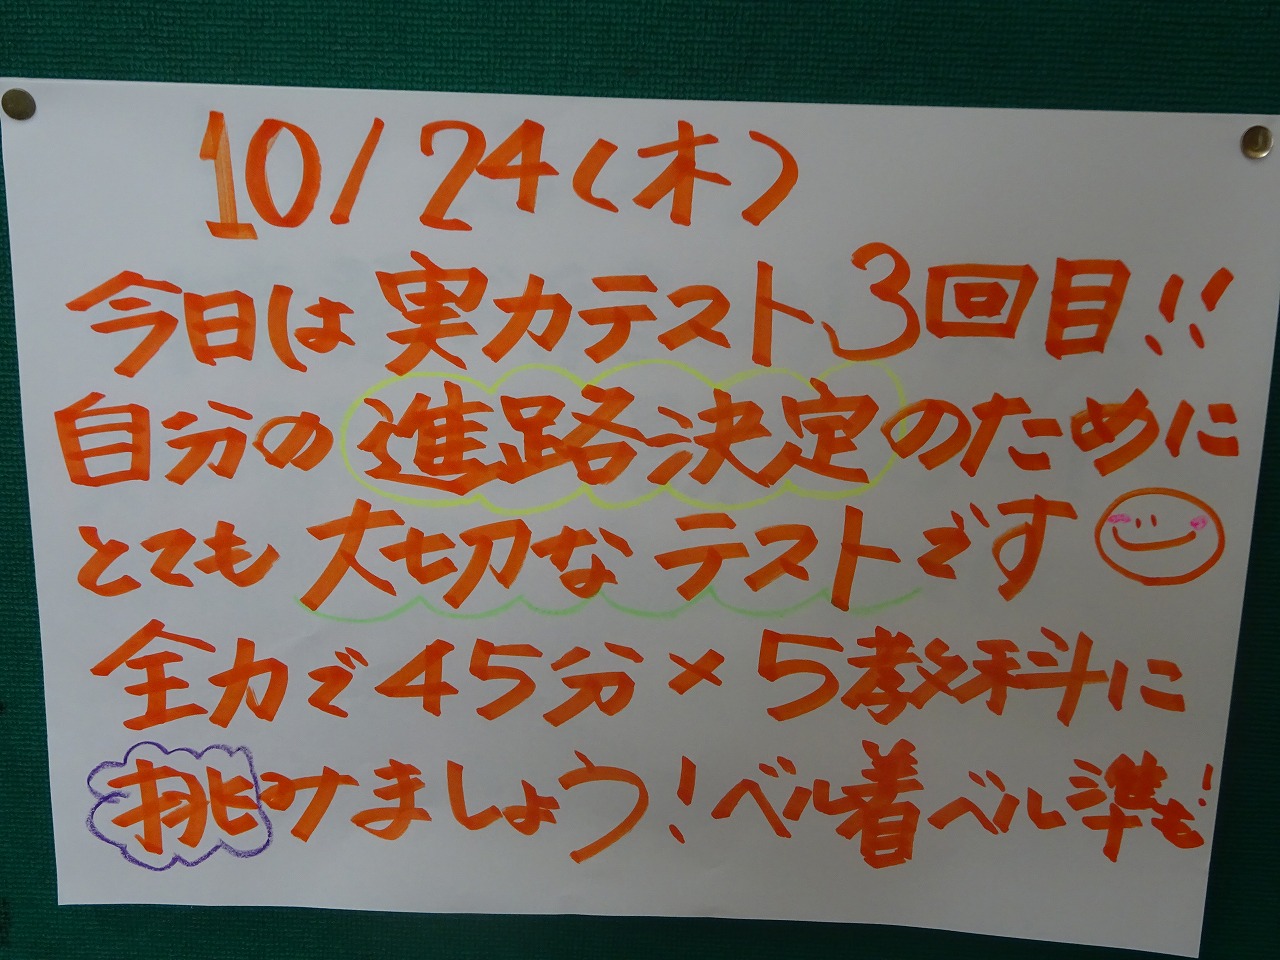 10/24(木)
今日は実力テスト3回目!!
自分の進路決定のために
とても大切なテストです
全力で45分×5教科に
挑みましょう!ベル着ベル準も!